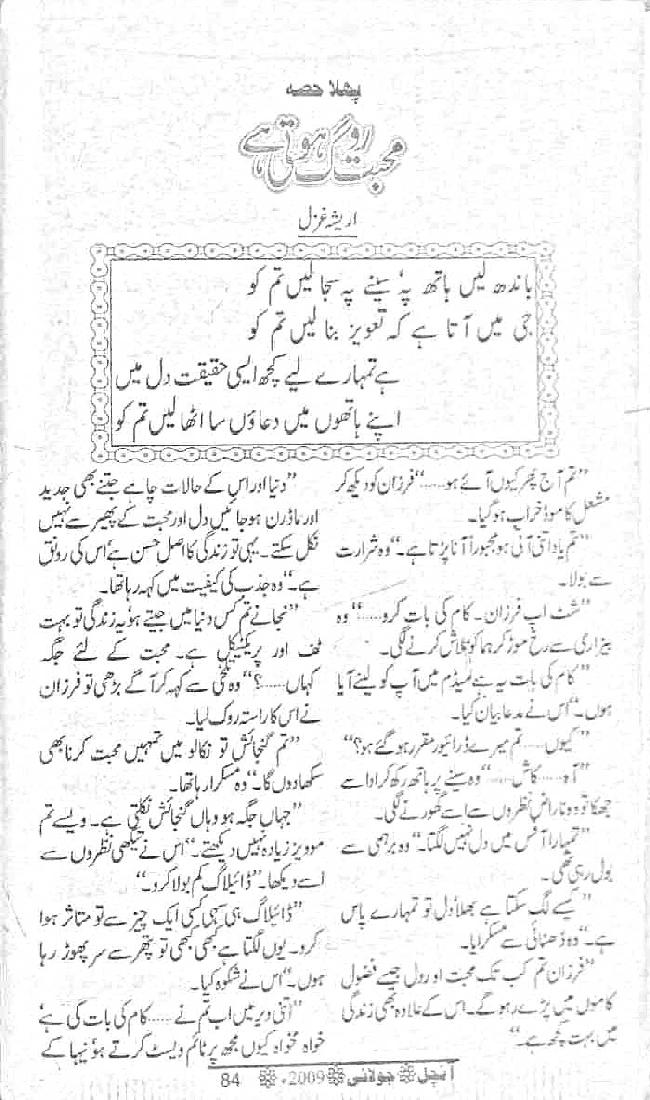 پہلا حصہ
محبت روگ ہوتی ہے
اریشہ غزل
باندھ لیں ہاتھ پہ سینے پہ سجا لیں تم کو
جی میں آتا ہے کہ تعویز بنا لیں تم کو
ہے تمہارے لیے کچھ ایسی حقیقت دل میں
اپنے ہاتھوں میں دعاؤں سا اٹھا لیں تم کو
”تم آج پھر کیوں آئے ہو......“ فرزان کو دیکھ کر
مشعل کا موڈ خراب ہو گیا۔
”تم یاد اتنی آتی ہو مجبوراً آنا پڑتا ہے۔“ وہ شرارت
سے بولا۔
”شٹ اپ فرزان۔ کام کی بات کرو......“ وہ
بیزاری سے رخ موڑ کر ہما کو تلاش کرنے لگی۔
”کام کی بات یہ ہے میڈم میں آپ کو لینے آیا
ہوں۔“ اس نے مدعا بیان کیا۔
”کیوں...... تم میرے ڈرائیور مقرر ہو گئے ہو؟“
”آہ...... کاش......“ وہ سینے پر ہاتھ رکھ کر ادا سے
جھکا تو وہ ناراض نظروں سے اسے گھورنے لگی۔
”تمہارا آفس میں دل نہیں لگتا۔“ وہ برہمی سے
بول رہی تھی۔
”کیسے لگ سکتا ہے بھلا، دل تو تمہارے پاس
ہے۔“ وہ ڈھٹائی سے مسکرایا۔
”فرزان تم کب تک محبت اور دل جیسے فضول
کاموں میں پڑے رہو گے۔ اس کے علاوہ بھی زندگی
میں بہت کچھ ہے۔“
”دنیا اور اس کے حالات چاہے جتنے بھی جدید
اور ماڈرن ہو جائیں دل اور محبت کے پھیر سے نہیں
نکل سکتے۔ یہی تو زندگی کا اصل حسن ہے، اس کی رونق
ہے۔“ وہ جذب کی کیفیت میں کہہ رہا تھا۔
”نجانے تم کس دنیا میں جیتے ہو، یہ زندگی تو بہت
ٹف اور پریکٹیکل ہے۔ محبت کے لئے جگہ
کہاں......؟“ وہ تلخی سے کہہ کر آگے بڑھی تو فرزان
نے اس کا راستہ روک لیا۔
”تم گنجائش تو نکالو میں تمہیں محبت کرنا بھی
سکھا دوں گا۔“ وہ مسکرا رہا تھا۔
”جہاں جگہ ہو وہاں گنجائش نکلتی ہے۔ ویسے تم
موویز زیادہ نہیں دیکھتے۔“ اس نے تیکھی نظروں سے
اسے دیکھا۔ ”ڈائیلاگ کم بولا کرو۔“
”ڈائیلاگ ہی سہی کسی ایک چیز سے تو متاثر ہوا
کرو۔ یوں لگتا ہے کبھی کبھی تو پتھر سے سر پھوڑ رہا
ہوں۔“ اس نے شکوہ کیا۔
”اتنی دیر میں اب تم نے...... کام کی بات کی ہے،
خواہ مخواہ کیوں مجھ پر ٹائم ویسٹ کرتے ہو، نیہا کے
آنچل جولائی 2009ء 84